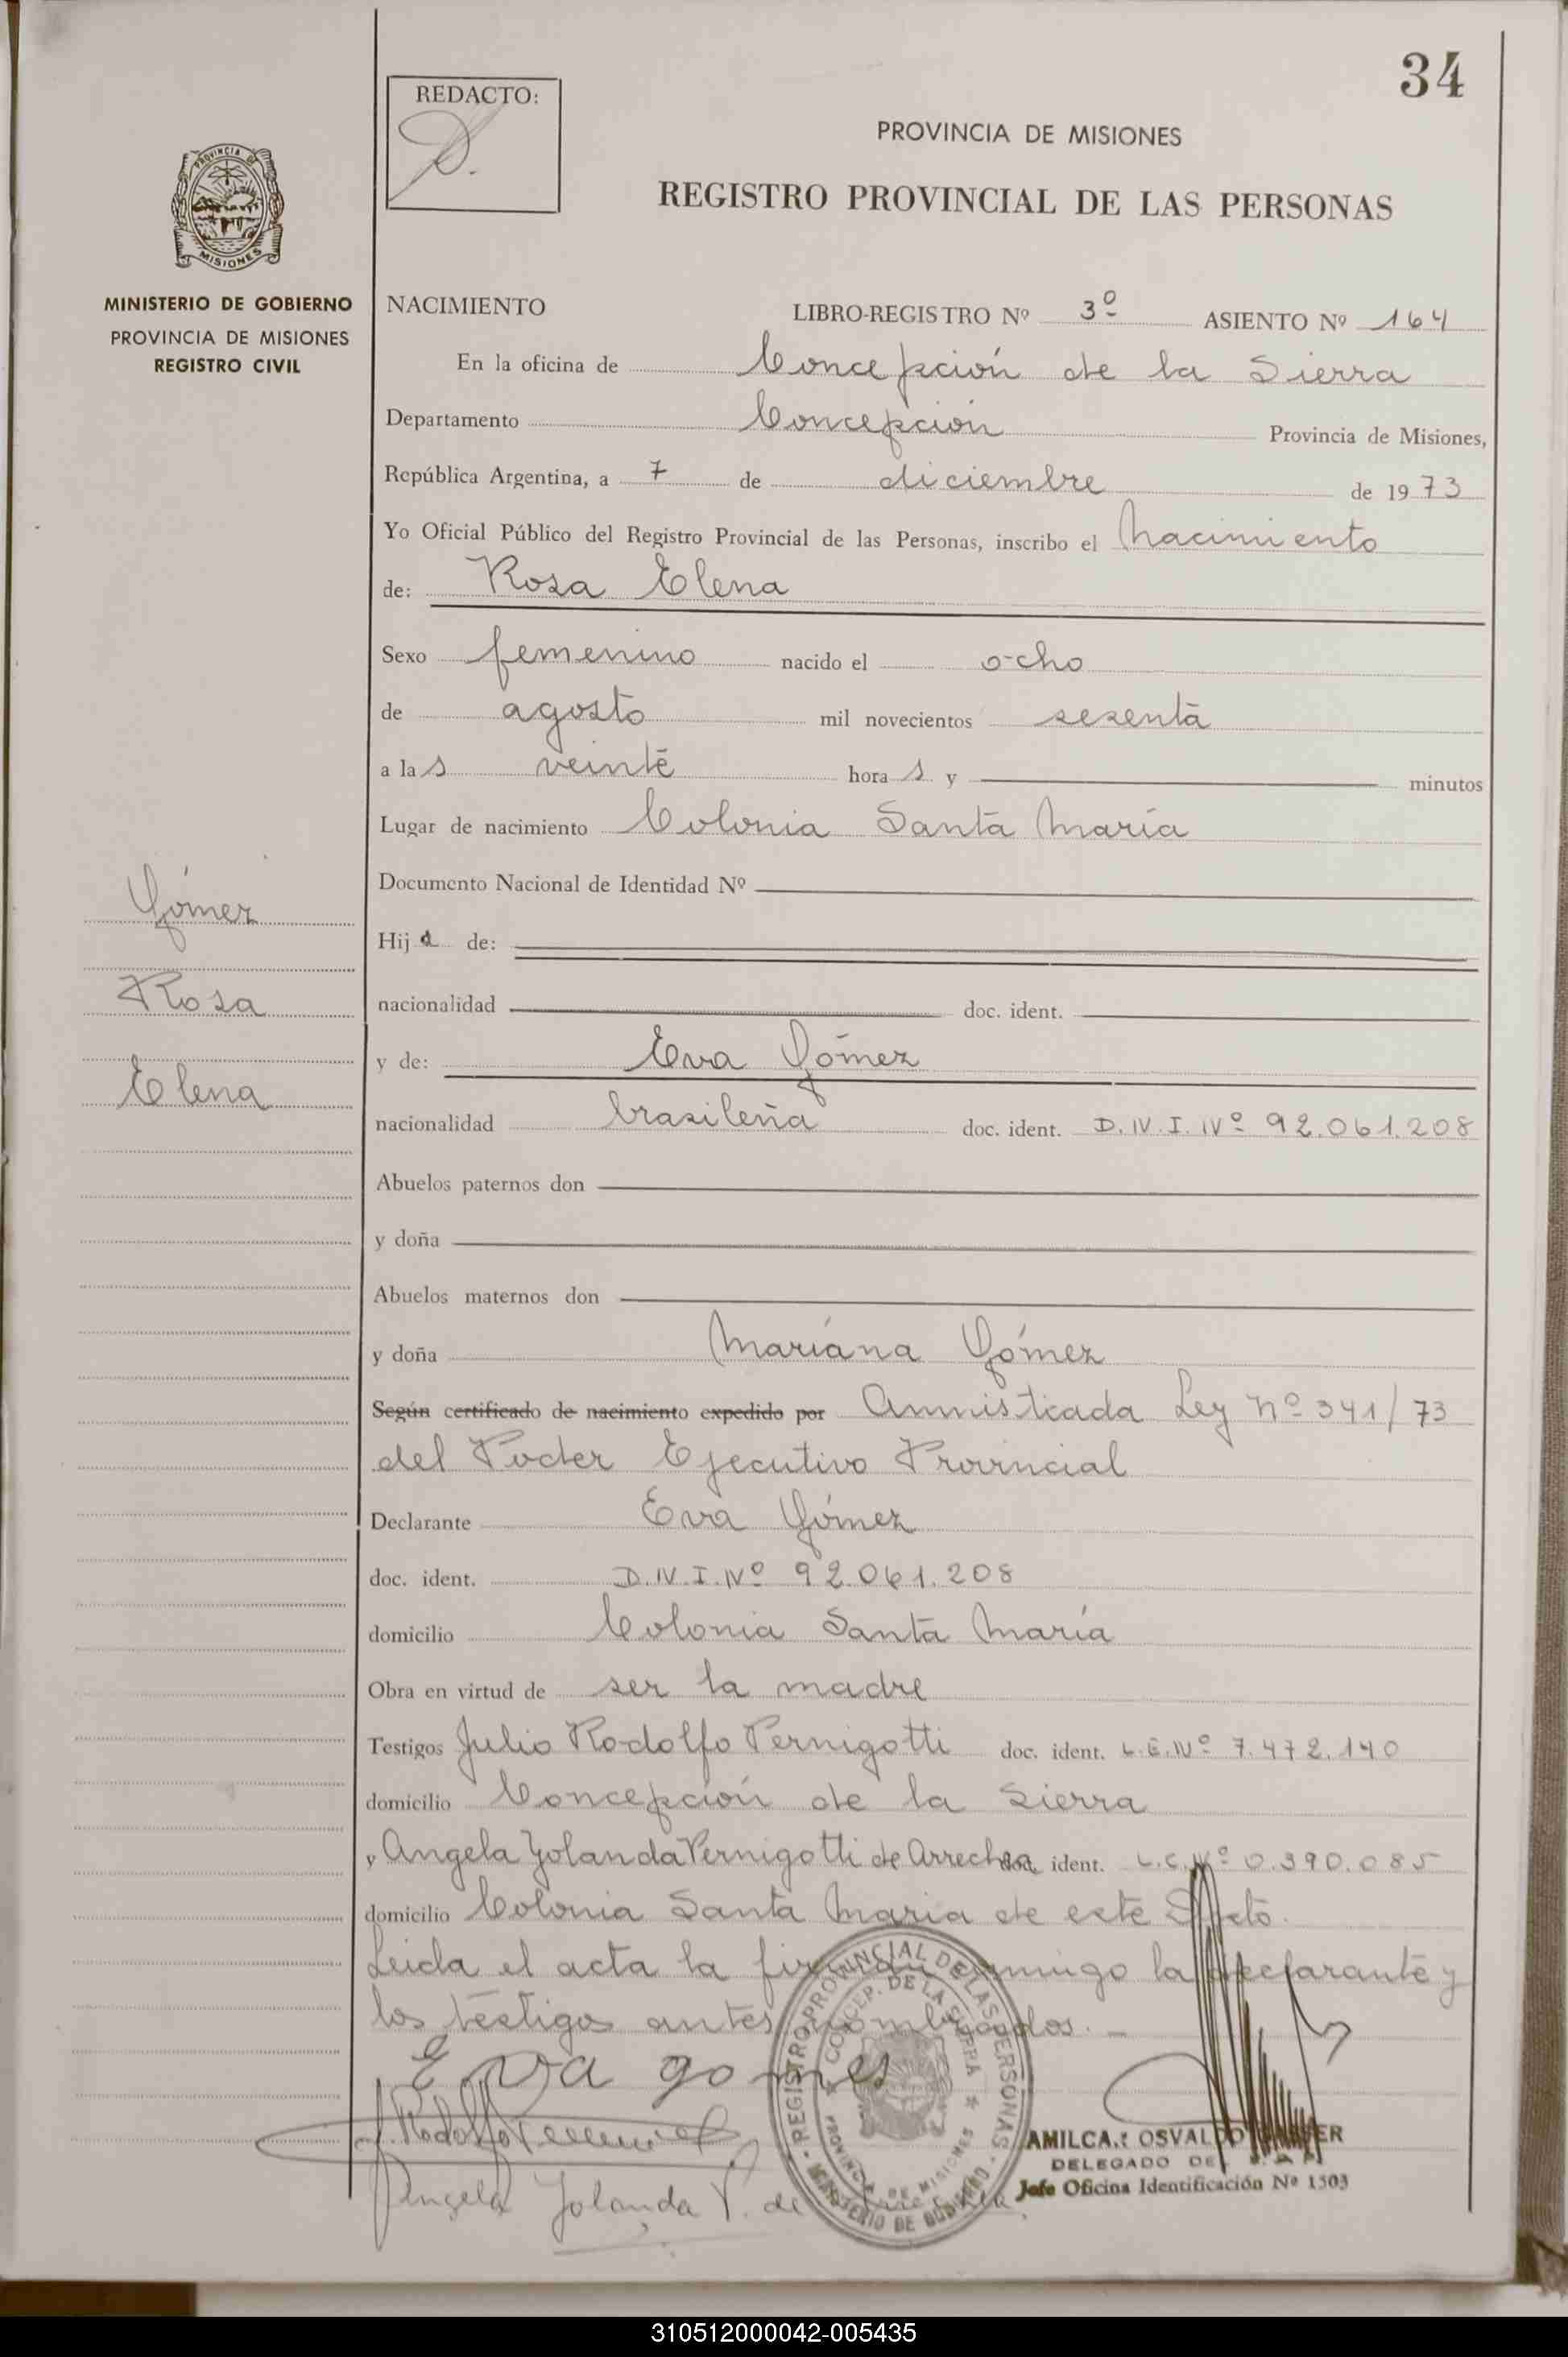 34
REDACTO:
PROVINCIA DE MISIONES
REGISTRO PROVINCIAL DE LAS PERSONAS
PROVINCIA DE
MISIONES
MINISTERIO DE GOBIERNO
PROVINCIA DE MISIONES
REGISTRO CIVIL
NACIMIENTO LIBRO-REGISTRO Nº 3º ASIENTO Nº 164
En la oficina de Concepción de la Sierra
Departamento Concepción Provincia de Misiones,
República Argentina, a 7 de diciembre de 1973
Yo Oficial Público del Registro Provincial de las Personas, inscribo el nacimiento
de: Rosa Elena
Sexo femenino nacido el ocho
de agosto mil novecientos sesenta
a las veinte horas y minutos
Lugar de nacimiento Colonia Santa María
Documento Nacional de Identidad Nº
Gómez
Rosa
Elena
Hija de:
nacionalidad doc. ident.
y de: Eva Gómez
nacionalidad brasileña doc. ident. D.N.I. Nº 92.061.208
Abuelos paternos don
y doña
Abuelos maternos don
y doña Mariana Gómez
Según certificado de nacimiento expedido por Amnisticada Ley Nº 341/73
del Poder Ejecutivo Provincial
Declarante Eva Gómez
doc. ident. D.N.I. Nº 92.061.208
domicilio Colonia Santa María
Obra en virtud de ser la madre
Testigos Julio Rodolfo Pernigotti doc. ident. L.E. Nº 7.472.140
domicilio Concepción de la Sierra
y Angela Yolanda Pernigotti de Arrechea doc. ident. L.C. Nº 0.390.085
domicilio Colonia Santa María de este Dpto.
Leida el acta la firman conmigo la declarante y
los testigos antes nombrados.-
Eva gomes
REGISTRO PROVINCIAL DE LAS PERSONAS
CONCEP. DE LA SIERRA
PROVINCIA DE MISIONES
MINISTERIO DE GOBIERNO
J. Rodolfo
Angela Yolanda P. de
AMILCAR OSVALDO
DELEGADO DEL
Jefe Oficina Identificación Nº 1503
310512000042-005435